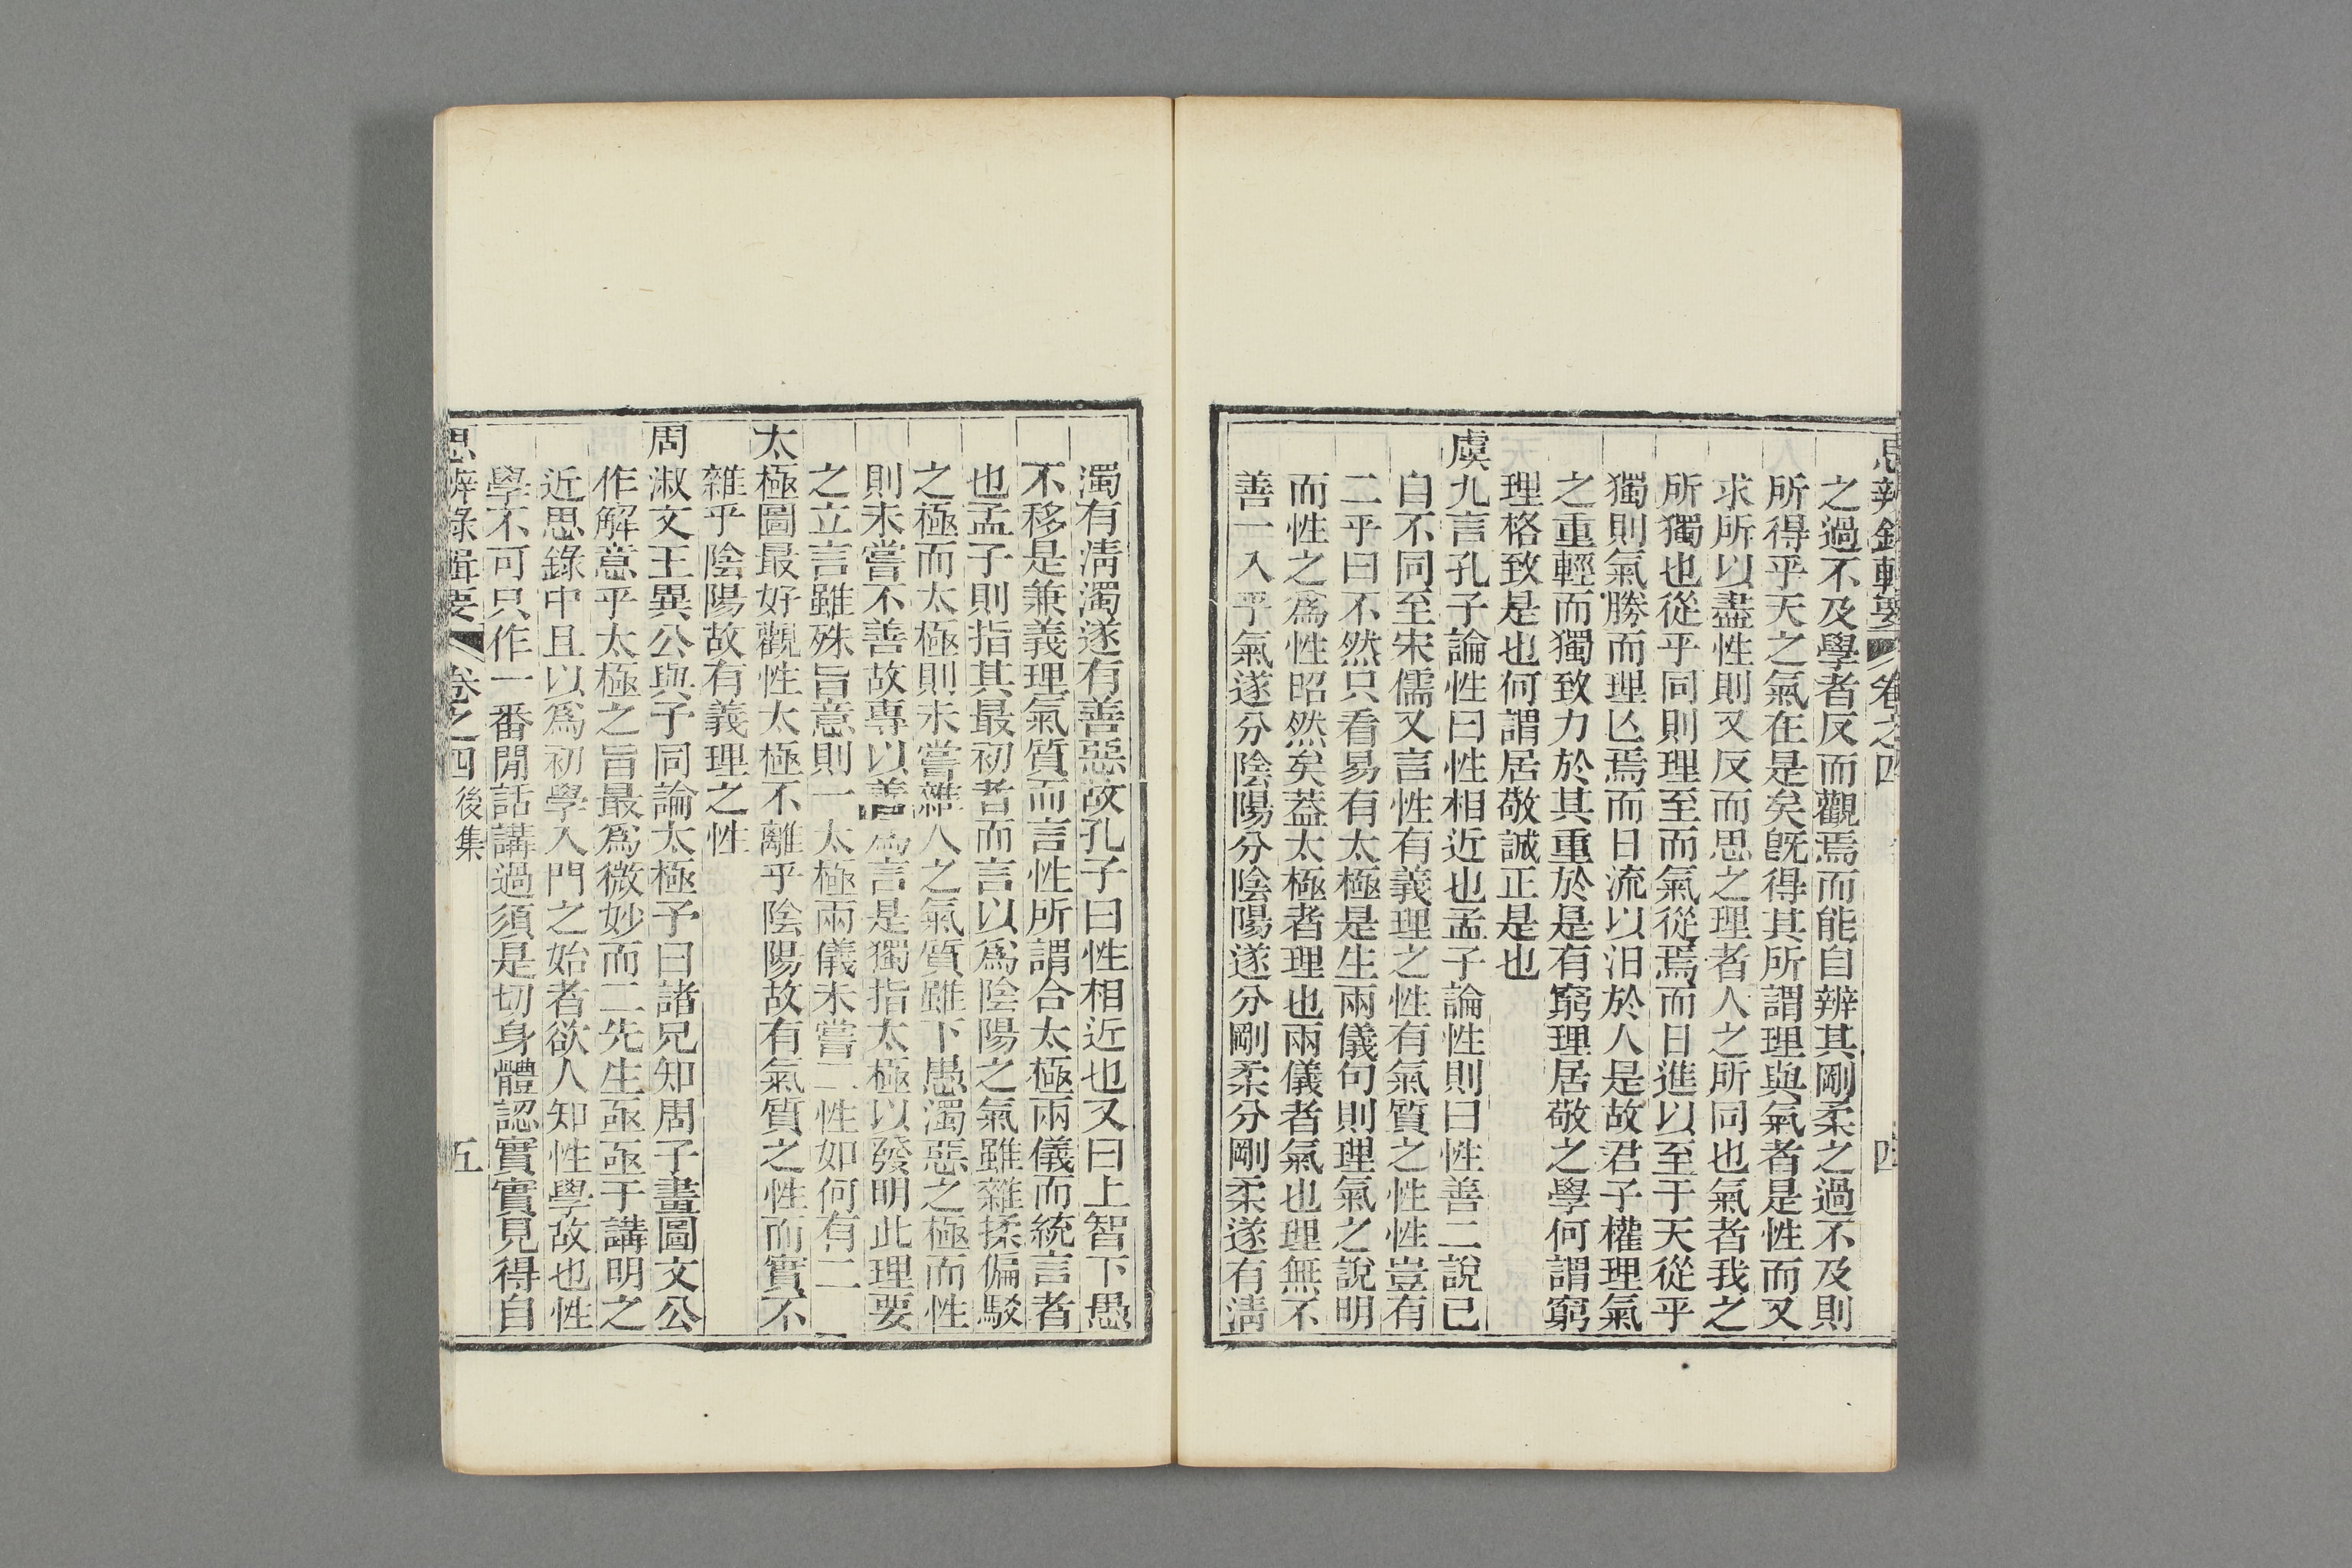 思辨錄輯要 卷之四 四
之過不及學者反而觀焉而能自辨其剛柔之過不及則
所得乎天之氣在是矣旣得其所謂理與氣者是性而又
求所以盡性則又反而思之理者人之所同也氣者我之
所獨也從乎同則理至而氣從焉而日進以至于天從乎
獨則氣勝而理亾焉而日流以汨於人是故君子權理氣
之重輕而獨致力於其重於是有窮理居敬之學何謂窮
理格致是也何謂居敬誠正是也
虞九言孔子論性曰性相近也孟子論性則曰性善二說已
自不同至宋儒又言性有義理之性有氣質之性性豈有
二乎曰不然只看易有太極是生兩儀句則理氣之說明
而性之爲性昭然矣葢太極者理也兩儀者氣也理無不
善一入乎氣遂分陰陽分陰陽遂分剛柔分剛柔遂有淸
濁有淸濁遂有善惡故孔子曰性相近也又曰上智下愚
不移是兼義理氣質而言性所謂合太極兩儀而統言者
也孟子則指其最初者而言以爲陰陽之氣雖雜揉偏駁
之極而太極則未嘗雜人之氣質雖下愚濁惡之極而性
則未嘗不善故專以善爲言是獨指太極以發明此理要
之立言雖殊旨意則一太極兩儀未嘗二性如何有二
太極圖最好觀性太極不離乎陰陽故有氣質之性而實不
雜乎陰陽故有義理之性
周淑文王異公與予同論太極予曰諸兄知周子畫圖文公
作解意乎太極之旨最爲微妙而二先生亟亟于講明之
近思錄中且以爲初學入門之始者欲人知性學故也性
學不可只作一番閒話講過須是切身體認實實見得自
思辨錄輯要 卷之四 後集 五